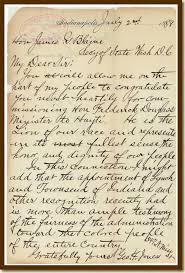 Indianapolis July 2nd 1889
Hon James G. Blaine
Secy of State Wash D.C
My Dear Sir:
You will allow me on the
part of my people to congratulate
you most heartily for com-
missioning Hon Frederick Douglass
Minister to Hayti. He is the
lion of our race and represents
in its fullest sense the
honor and dignity of our people
In this connection I might
add that the appointment of
and Townsend of Indiana and
other recognition recently had
is more than ample testimony
of the of the administration
toward the colored people
of the entire Country.
Gratefully yours Geo. H. Jones